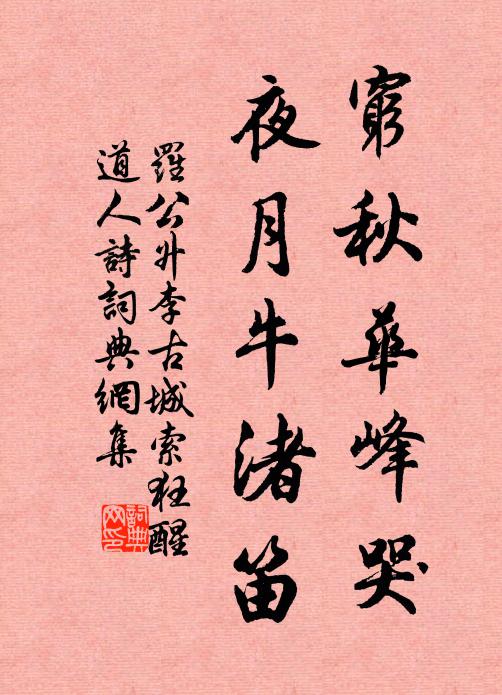 窮秋華峰哭
夜月牛渚笛
羅公升李古城索狂醒
道人詩詞典網集
詞典
网印